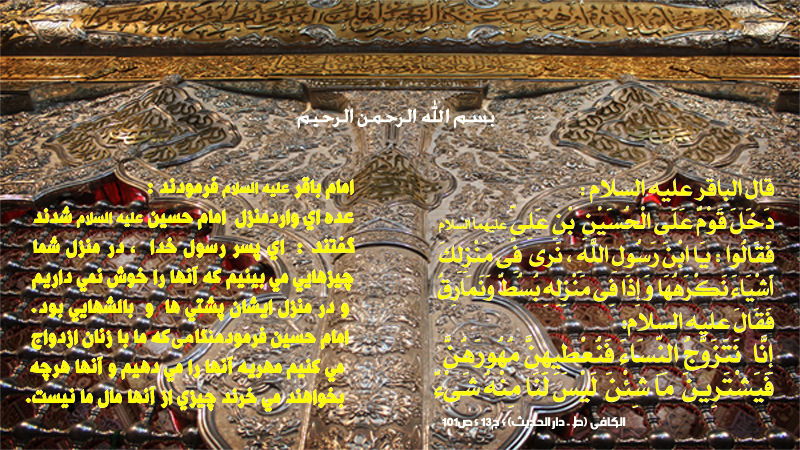 بسم الله الرحمن الرحیم
قال الباقر علیه السلام :
دَخَلَ قَوْمٌ عَلَى الْحُسَيْنِ بْنِ عَلِيٍّ علیهما السلام
فَقَالُوا : يا ابْنَ رسُولِ اللَّهِ ، نَرى فی مَنْزِلِكَ
أَشْيَاءَ نَكْرَهُهَا وَ إِذَا فی مَنْزِلِهِ بُسُطٌ وَنَمَارِقُ
فَقَالَ علیه السلام:
إِنَّا نَتَزَوَّجُ النِّسَاءَ فَنُعْطِيهِنَّ مُهُورَهُنَّ
فَيَشْتَرِينَ مَا شِئْنَ لَيْسَ لَنَا مِنْهُ شَیْءٌ
امام باقر علیه السلام فرمودند :
عده اي واردمنزل امام حسین علیه السلام شدند
گفتند : اي پسر رسول خدا ، در منزل شما
چیزهایي مي بینیم که آنها را خوش نمي داریم
و در منزل ایشان پشتي ها و بالشهایي بود.
امام حسین فرمودهنگامی‌که ما با زنان ازدواج
مي کنیم مهریه آنها را مي دهیم و آنها هرچه
بخواهند مي خرند چیزي از آنها مال ما نیست.
الکافی (ط - دارالحدیث) ؛ ج13 ؛ ص101